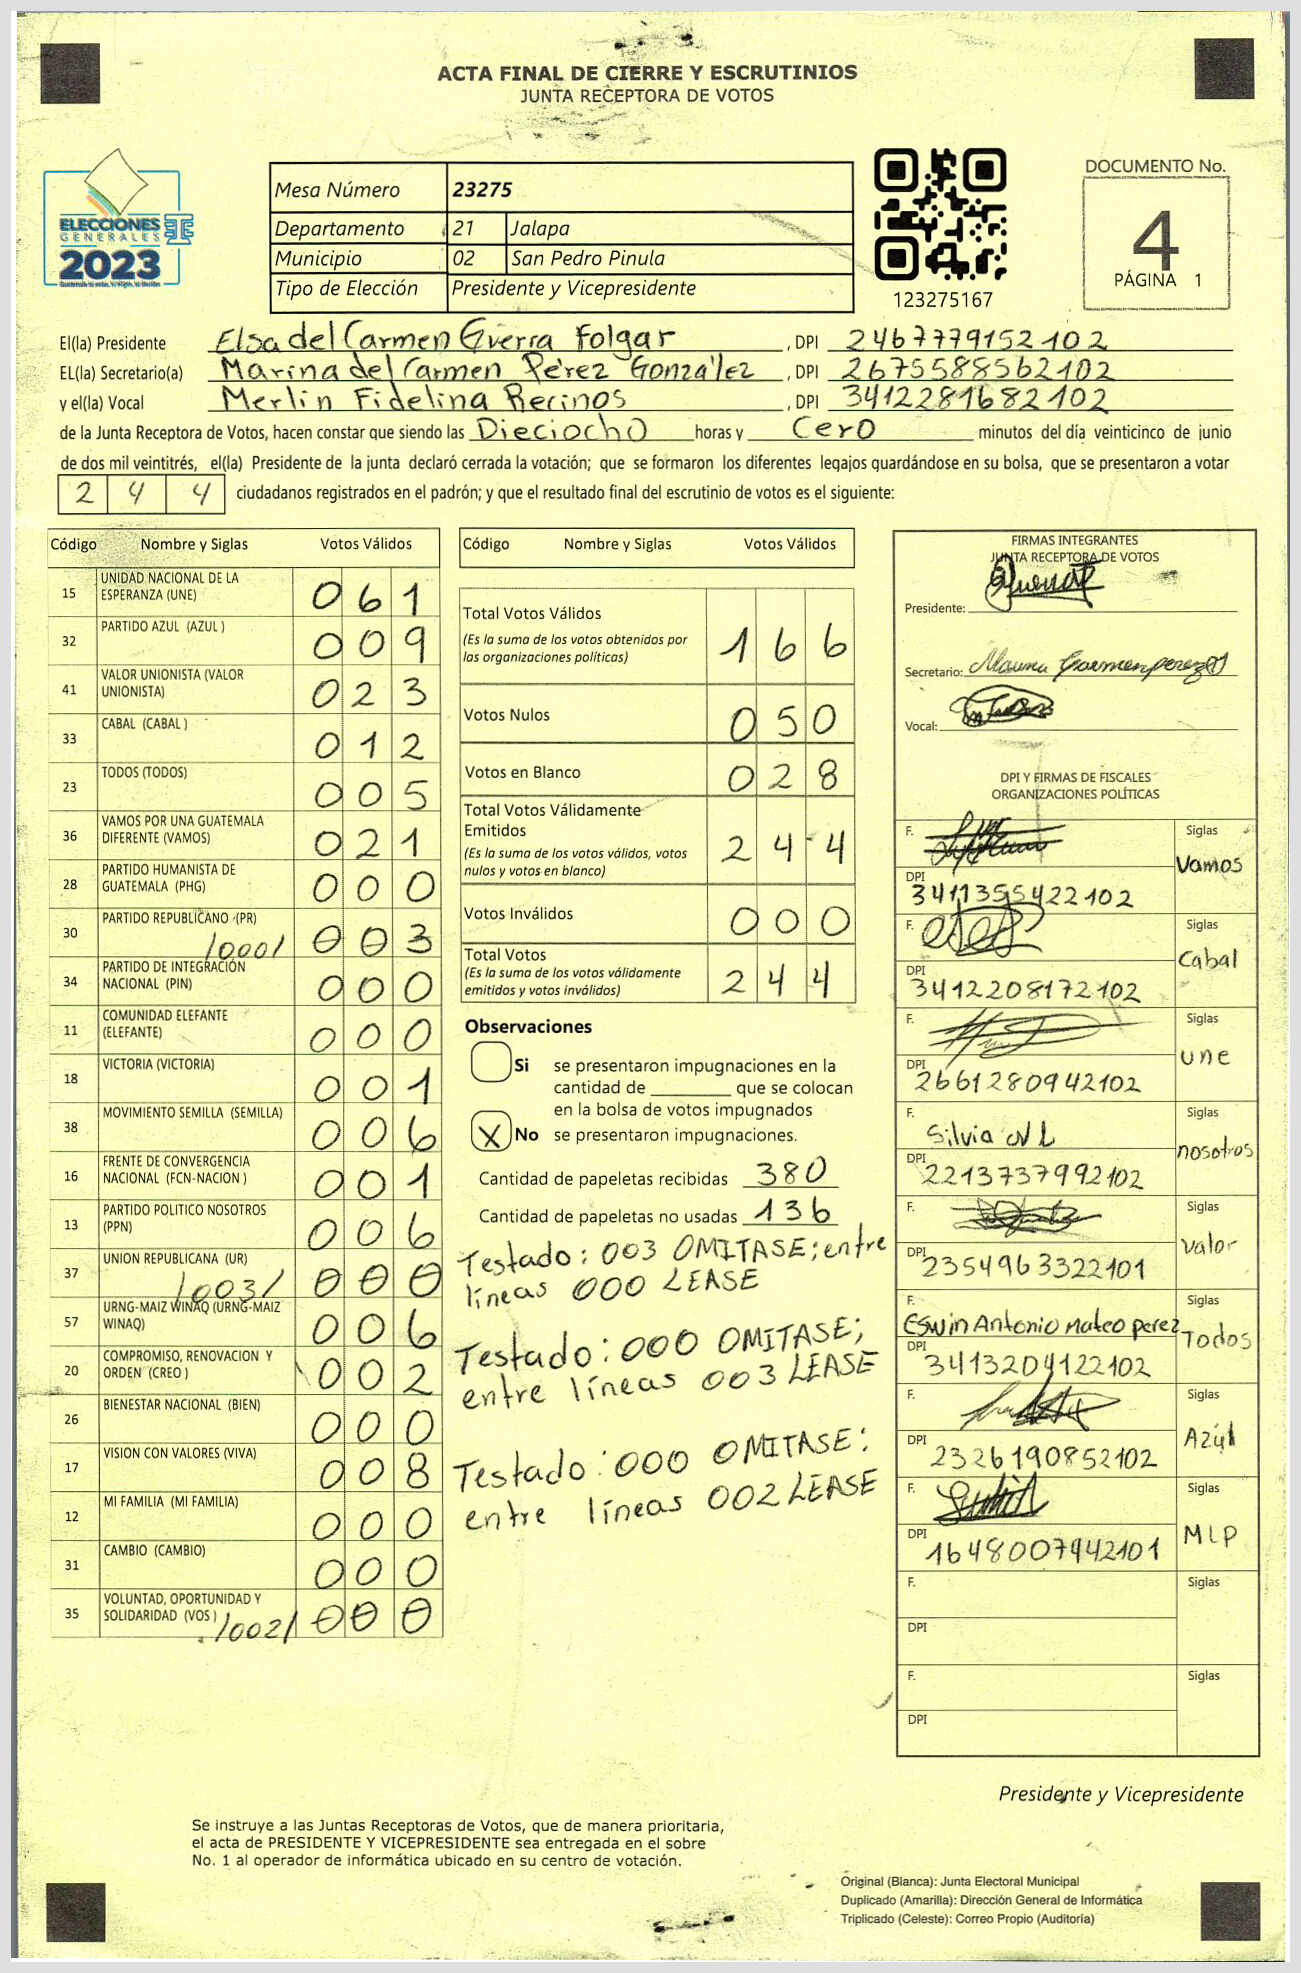 ACTA FINAL DE CIERRE Y ESCRUTINIOS
JUNTA RECEPTORA DE VOTOS
ELECCIONES
GENERALES
2023
Mesa Número 23275
Departamento 21 Jalapa
Municipio 02 San Pedro Pinula
Tipo de Elección Presidente y Vicepresidente
123275167
DOCUMENTO No.
4
PÁGINA 1
El(la) Presidente Elsa del Carmen Guerra Folgar , DPI 2467779152102
EL(la) Secretario(a) Marina del Carmen Pérez González , DPI 2675588562102
y el(la) Vocal Merlin Fidelina Recinos , DPI 3412281682102
de la Junta Receptora de Votos, hacen constar que siendo las Dieciocho horas y Cero minutos del día veinticinco de junio
de dos mil veintitrés, el(la) Presidente de la junta declaró cerrada la votación; que se formaron los diferentes legajos guardándose en su bolsa, que se presentaron a votar
2 4 4 ciudadanos registrados en el padrón; y que el resultado final del escrutinio de votos es el siguiente:
Código Nombre y Siglas Votos Válidos
15 UNIDAD NACIONAL DE LA ESPERANZA (UNE) 061
32 PARTIDO AZUL (AZUL ) 009
41 VALOR UNIONISTA (VALOR UNIONISTA) 023
33 CABAL (CABAL ) 012
23 TODOS (TODOS) 005
36 VAMOS POR UNA GUATEMALA DIFERENTE (VAMOS) 021
28 PARTIDO HUMANISTA DE GUATEMALA (PHG) 000
30 PARTIDO REPUBLICANO (PR) /000/ 003
34 PARTIDO DE INTEGRACIÓN NACIONAL (PIN) 000
11 COMUNIDAD ELEFANTE (ELEFANTE) 000
18 VICTORIA (VICTORIA) 001
38 MOVIMIENTO SEMILLA (SEMILLA) 006
16 FRENTE DE CONVERGENCIA NACIONAL (FCN-NACION ) 001
13 PARTIDO POLITICO NOSOTROS (PPN) 006
37 UNION REPUBLICANA (UR) /003/ 000
57 URNG-MAIZ WINAQ (URNG-MAIZ WINAQ) 006
20 COMPROMISO, RENOVACION Y ORDEN (CREO ) 002
26 BIENESTAR NACIONAL (BIEN) 000
17 VISION CON VALORES (VIVA) 008
12 MI FAMILIA (MI FAMILIA) 000
31 CAMBIO (CAMBIO) 000
35 VOLUNTAD, OPORTUNIDAD Y SOLIDARIDAD (VOS ) /002/ 000
Código Nombre y Siglas Votos Válidos
Total Votos Válidos 166
(Es la suma de los votos obtenidos por
las organizaciones políticas)
Votos Nulos 050
Votos en Blanco 028
Total Votos Válidamente
Emitidos 244
(Es la suma de los votos válidos, votos
nulos y votos en blanco)
Votos Inválidos 000
Total Votos 244
(Es la suma de los votos válidamente
emitidos y votos inválidos)
Observaciones
Si se presentaron impugnaciones en la
cantidad de ________ que se colocan
en la bolsa de votos impugnados
X No se presentaron impugnaciones.
Cantidad de papeletas recibidas 380
Cantidad de papeletas no usadas 136
Testado: 003 OMITASE; entre
líneas 000 LEASE
Testado: 000 OMITASE;
entre líneas 003 LEASE
Testado: 000 OMITASE:
entre líneas 002 LEASE
FIRMAS INTEGRANTES
JUNTA RECEPTORA DE VOTOS
Presidente:
Secretario:
Vocal:
DPI Y FIRMAS DE FISCALES
ORGANIZACIONES POLÍTICAS
F. Siglas
Vamos
DPI 3411355422102
F. Siglas
Cabal
DPI 3412208172102
F. Siglas
une
DPI 2661280942102
F. Silvia Siglas
nosotros
DPI 2213737992102
F. Siglas
Valor
DPI 2354963322101
F. Eswin Antonio Mateo perez Siglas
Todos
DPI 3413204122102
F. Siglas
Azúl
DPI 2326190852102
F. Siglas
MLP
DPI 1648007942101
F. Siglas
DPI
F. Siglas
DPI
Presidente y Vicepresidente
Se instruye a las Juntas Receptoras de Votos, que de manera prioritaria,
el acta de PRESIDENTE Y VICEPRESIDENTE sea entregada en el sobre
No. 1 al operador de informática ubicado en su centro de votación.
Original (Blanca): Junta Electoral Municipal
Duplicado (Amarilla): Dirección General de Informática
Triplicado (Celeste): Correo Propio (Auditoría)